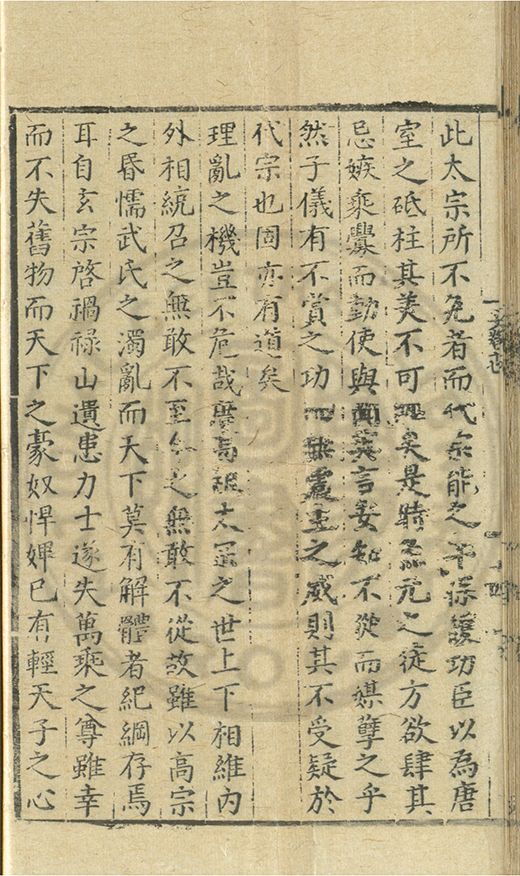 此太宗所不免者而代宗能之卒保護功臣以為唐
室之砥柱其美不可**矣是時**元之徒方欲肆其
忌嫉乘釁而動使與**言安知不從而媒孽之乎
然子儀有不賞之功**無震主之威則其不受疑於
代宗也固亦有道矣
理亂之機豈不危哉**高祖太宗之世上下相維內
外相統召之無敢不至令之無敢不從故雖以高宗
之昏懦武氏之濁亂而天下莫有解體者紀綱存焉
耳自玄宗啓禍祿山遺患力士遂失萬乘之尊雖幸
而不失舊物而天下之豪奴悍婢已有輕天子之心